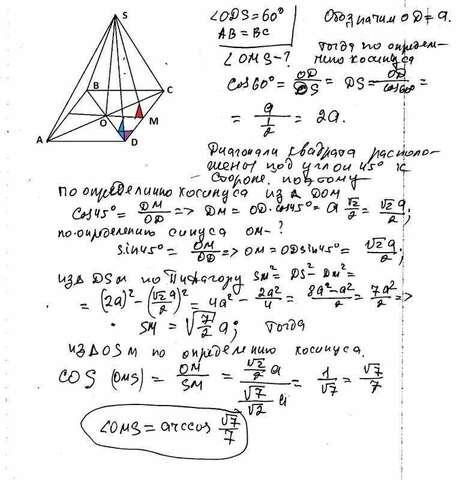 S
B
C
O
M
A
D
∠ODS=60°
AB = BC
∠OMS-?
Обозначим OD=a.
Тогда по определ-
нию косинуса
cos60° = OD/DS => DS = OD/cos60° =
= a/(1/2) = 2a.
Диагонали квадрата располо-
жены под углом 45° к
стороне, поэтому
по определению косинуса из Δ DOM
cos45° = DM/OD => DM = OD·cos45° = a √2/2 = √2a/2;
по определению синуса OM-?
sin45° = OM/OD => OM = OD sin45° = √2a/2;
из DSM по Пифагору SM² = DS² - DM² =
= (2a)² - (√2a/2)² = 4a² - 2a²/4 = 8a²-a²/2 = 7a²/2 =>
SM = √7/2 a; тогда
из ΔOSM по определению косинуса.
COS (OMS) = OM/SM = (√2/2 a)/(√7/√2 a) = 1/√7 = √7/7
∠OMS = arccos √7/7